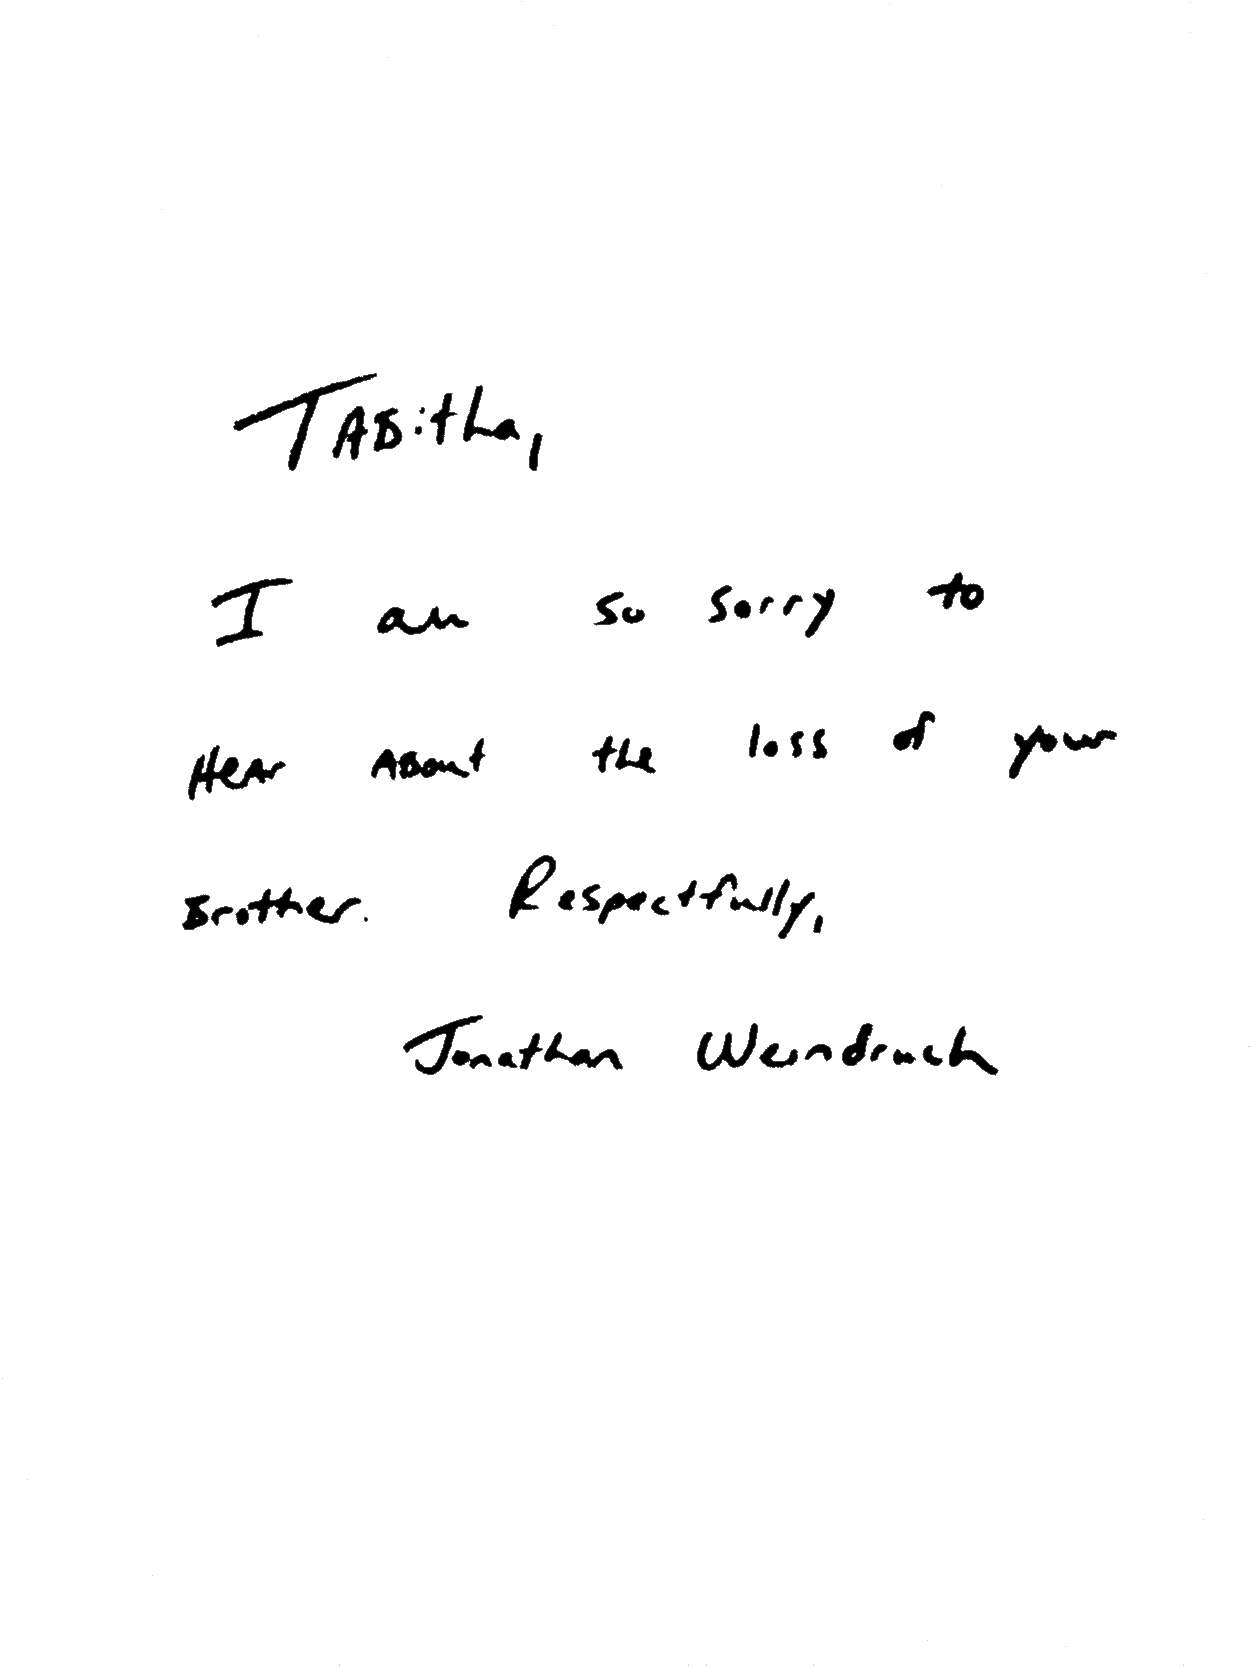 Tabitha,
I am so sorry to
Hear About the loss of your
Brother. Respectfully,
Jonathan Weindruch